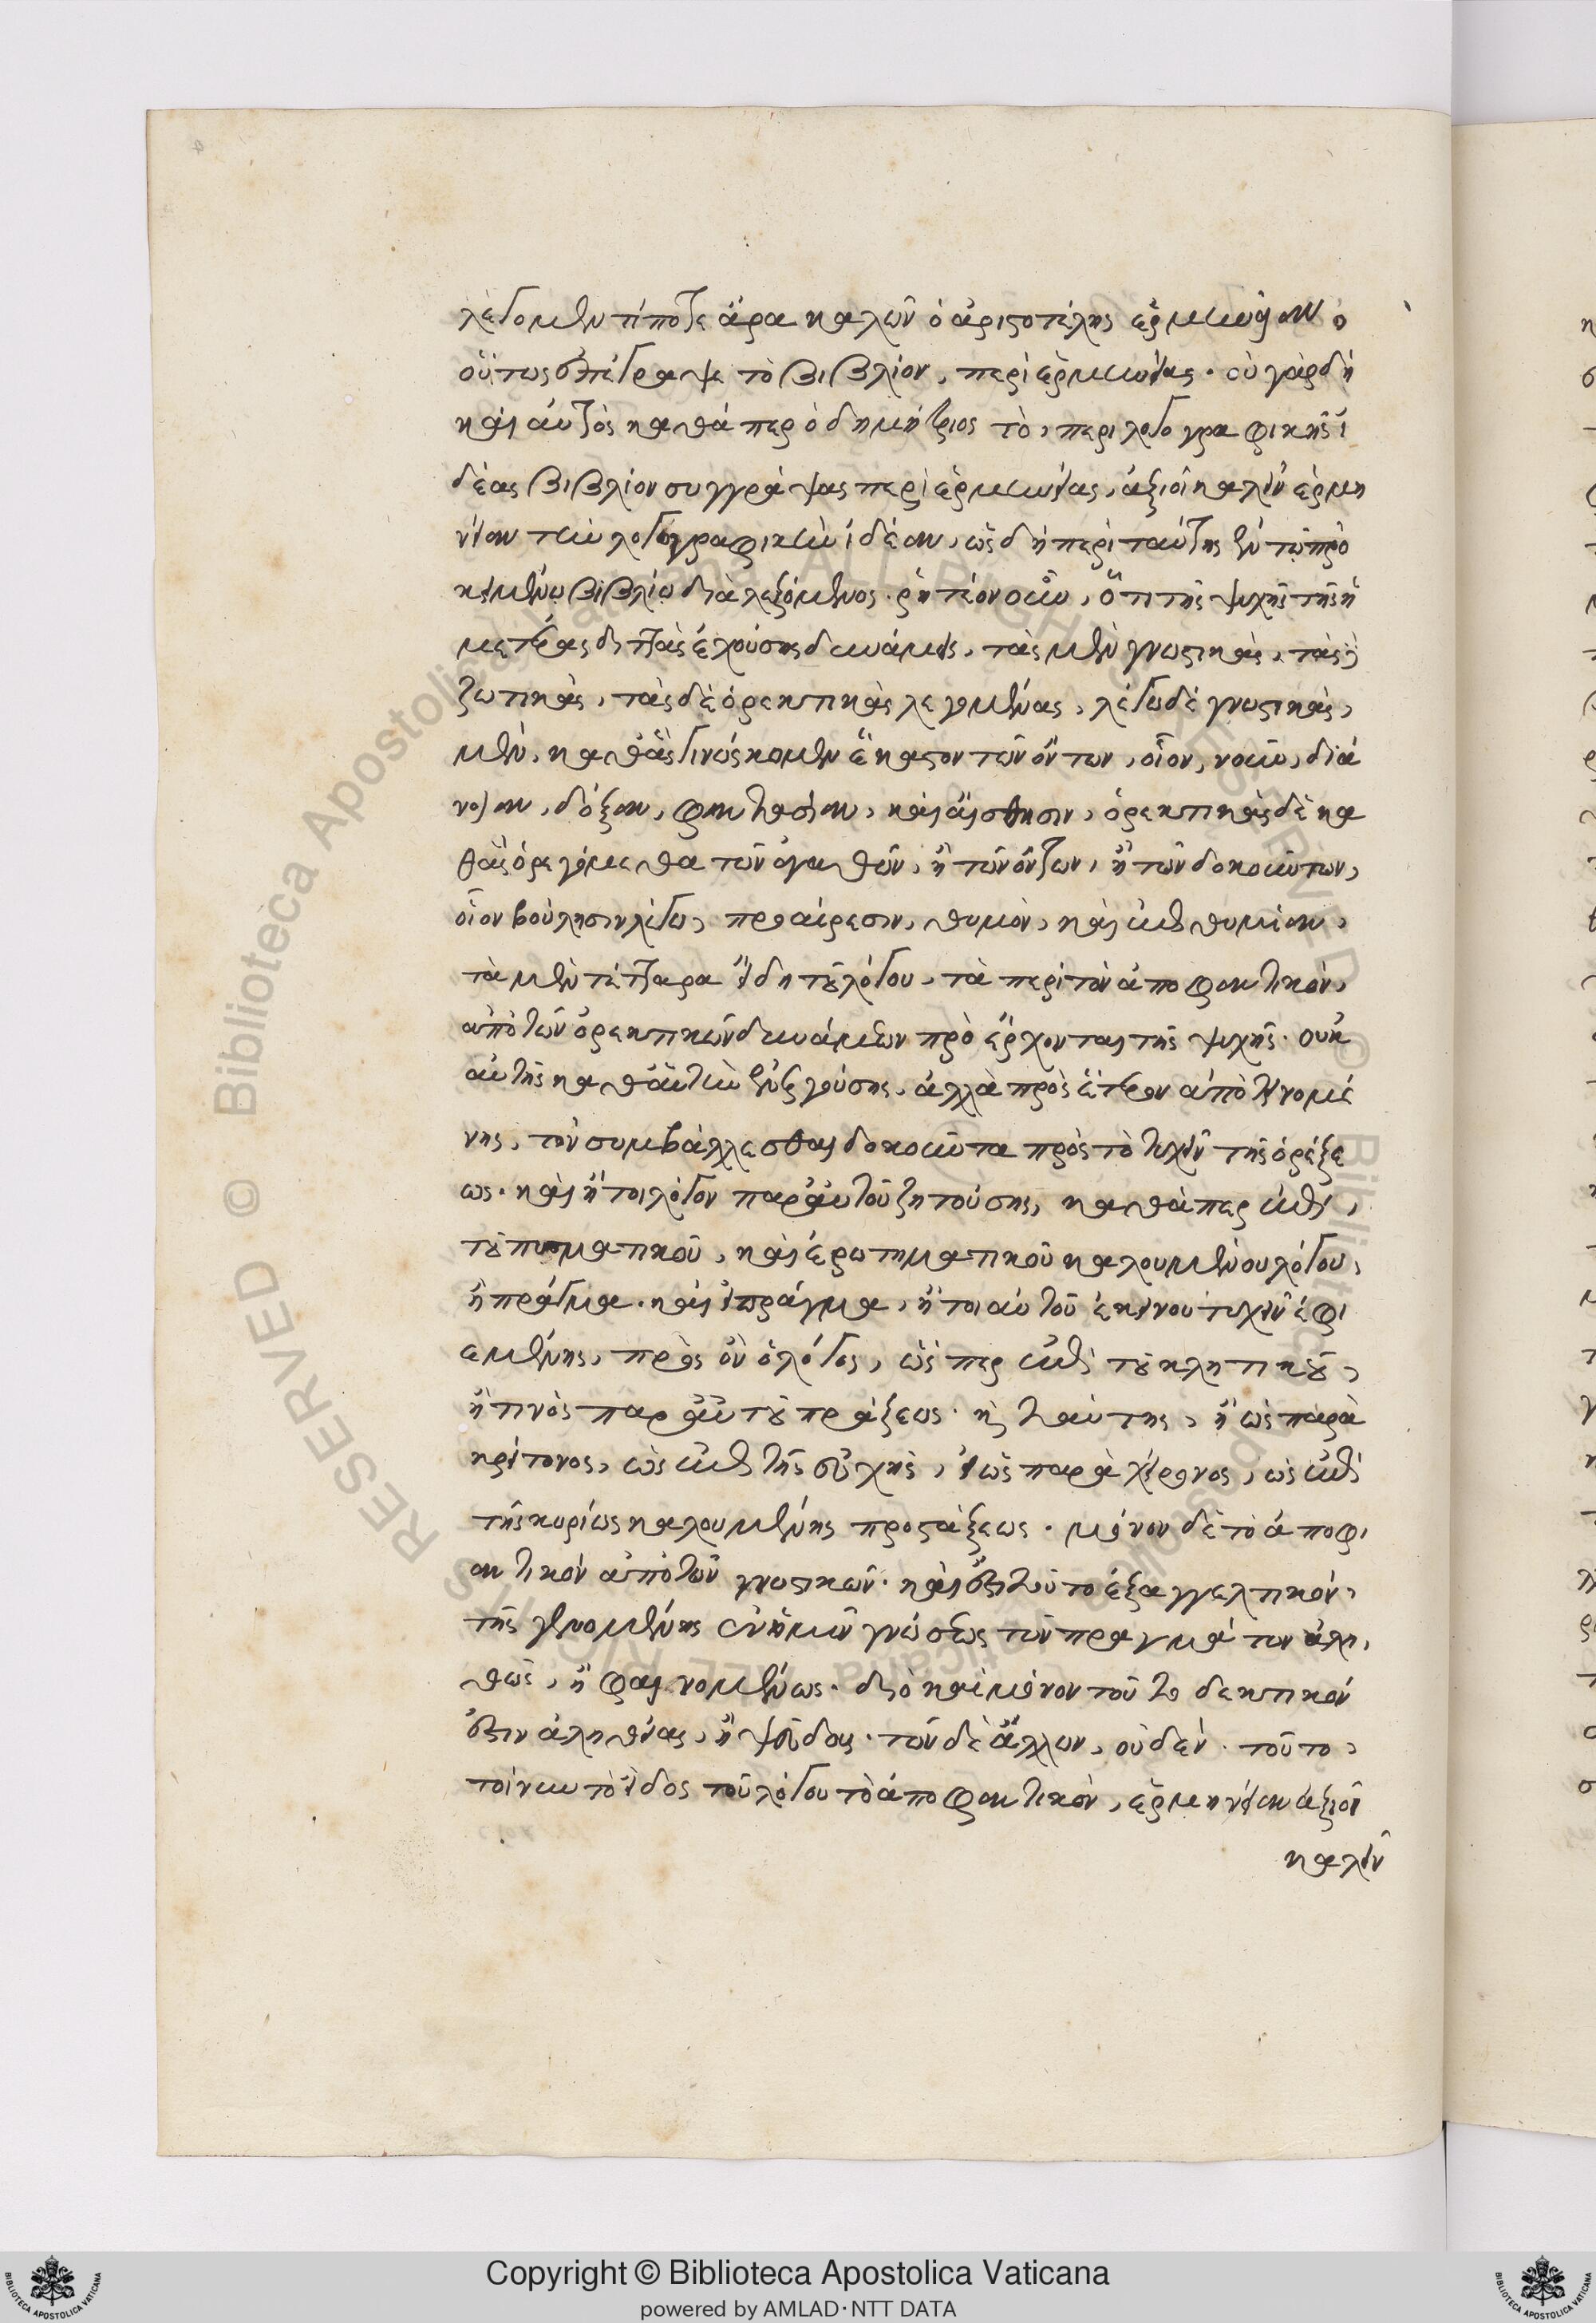 λέγομεν τί ποτε ἄρα καλῶν ὁ ἀριστοτέλης ἑρμηνείαν
οὕτως ἐπέγραψε τὸ βιβλίον, περὶ ἑρμηνείας. οὐ γὰρ δὴ
καὶ αὐτὸς καθάπερ ὁ δημήτριος τὸ, περὶ λογογραφικῆς ἰ
δέας βιβλίον συγγράψας περὶ ἑρμηνείας, ἀξιοῖ καλεῖν ἑρμη
νείαν τὴν λογογραφικὴν ἰδέαν, ὡς δὴ περὶ ταύτης ἐν τῷ προ
κειμένῳ βιβλίῳ διαλεξόμενος. ῥητέον οὖν, ὅτι τῆς ψυχῆς τῆς ἡ
μετέρας διττὰς ἐχούσης δυνάμεις, τὰς μὲν γνωστικὰς, τὰς
ζωτικὰς, τὰς δὲ ὀρεκτικὰς λεγομένας, λέγω δὲ γνωστικὰς,
μὲν, καθ' ἃς γινώσκομεν ἕκαστον τῶν ὄντων, οἷον, νοῦν, διά
νοιαν, δόξαν, φαντασίαν, καὶ αἴσθησιν, ὀρεκτικὰς δὲ κα
θ' ἃς ὀρεγόμεθα τῶν ἀγαθῶν, ἢ τῶν ὄντων, ἢ τῶν δοκούντων,
οἷον βούλησιν λέγω, προαίρεσιν, θυμὸν, καὶ ἐπιθυμίαν,
τὰ μὲν τέτταρα εἴδη τοῦ λόγου, τὰ περὶ τὸν ἀποφαντικὸν,
ἀπὸ τῶν ὀρεκτικῶν δυνάμεων προέρχονται τῆς ψυχῆς. οὐκ
αὐτῆς καθ' αὑτὴν ἐνεργούσης, ἀλλὰ πρὸς ἕτερον ἀποτεινομέ
νης, τὸν συμβάλλεσθαι δοκοῦντα πρὸς τὸ τυχεῖν τῆς ὀρέξε
ως. καὶ ἤτοι λόγον παρ' αὐτοῦ ζητούσης, καθάπερ ἐπὶ,
τοῦ πυσματικοῦ, καὶ ἐρωτηματικοῦ καλουμένου λόγου,
ἢ πρᾶγμα. καὶ εἰ πρᾶγμα, ἤτοι αὐτοῦ ἐκείνου τυχεῖν ἐφι
εμένης, πρὸς ὃν ὁ λόγος, ὥσπερ ἐπὶ τοῦ κλητικοῦ,
ἤ τινος παρ' αὐτοῦ πράξεως. καὶ ταύτης, ἢ ὡς παρὰ
κρείττονος, ὡς ἐπὶ τῆς εὐχῆς, εἰ ὡς παρὰ χείρονος, ὡς ἐπὶ
τῆς κυρίως καλουμένης προστάξεως. μόνον δὲ τὸ ἀποφ
αντικὸν ἀπὸ τῶν γνωστικῶν. καὶ ἔστι τοῦτο ἐξαγγελτικὸν,
τῆς γενομένης ἐν ἡμῖν γνώσεως τῶν πραγμάτων ἀλη,
θῶς, ἢ φαινομένως. διὸ καὶ μόνον τοῦτο δεκτικόν
ἐστιν ἀληθείας, ἢ ψεύδους. τῶν δὲ ἄλλων, οὐδέν. τοῦτο,
τοίνυν τὸ εἶδος τοῦ λόγου τὸ ἀποφαντικὸν, ἑρμηνείαν ἀξιοῖ
καλεῖν
Copyright © Biblioteca Apostolica Vaticana
powered by AMLAD·NTT DATA